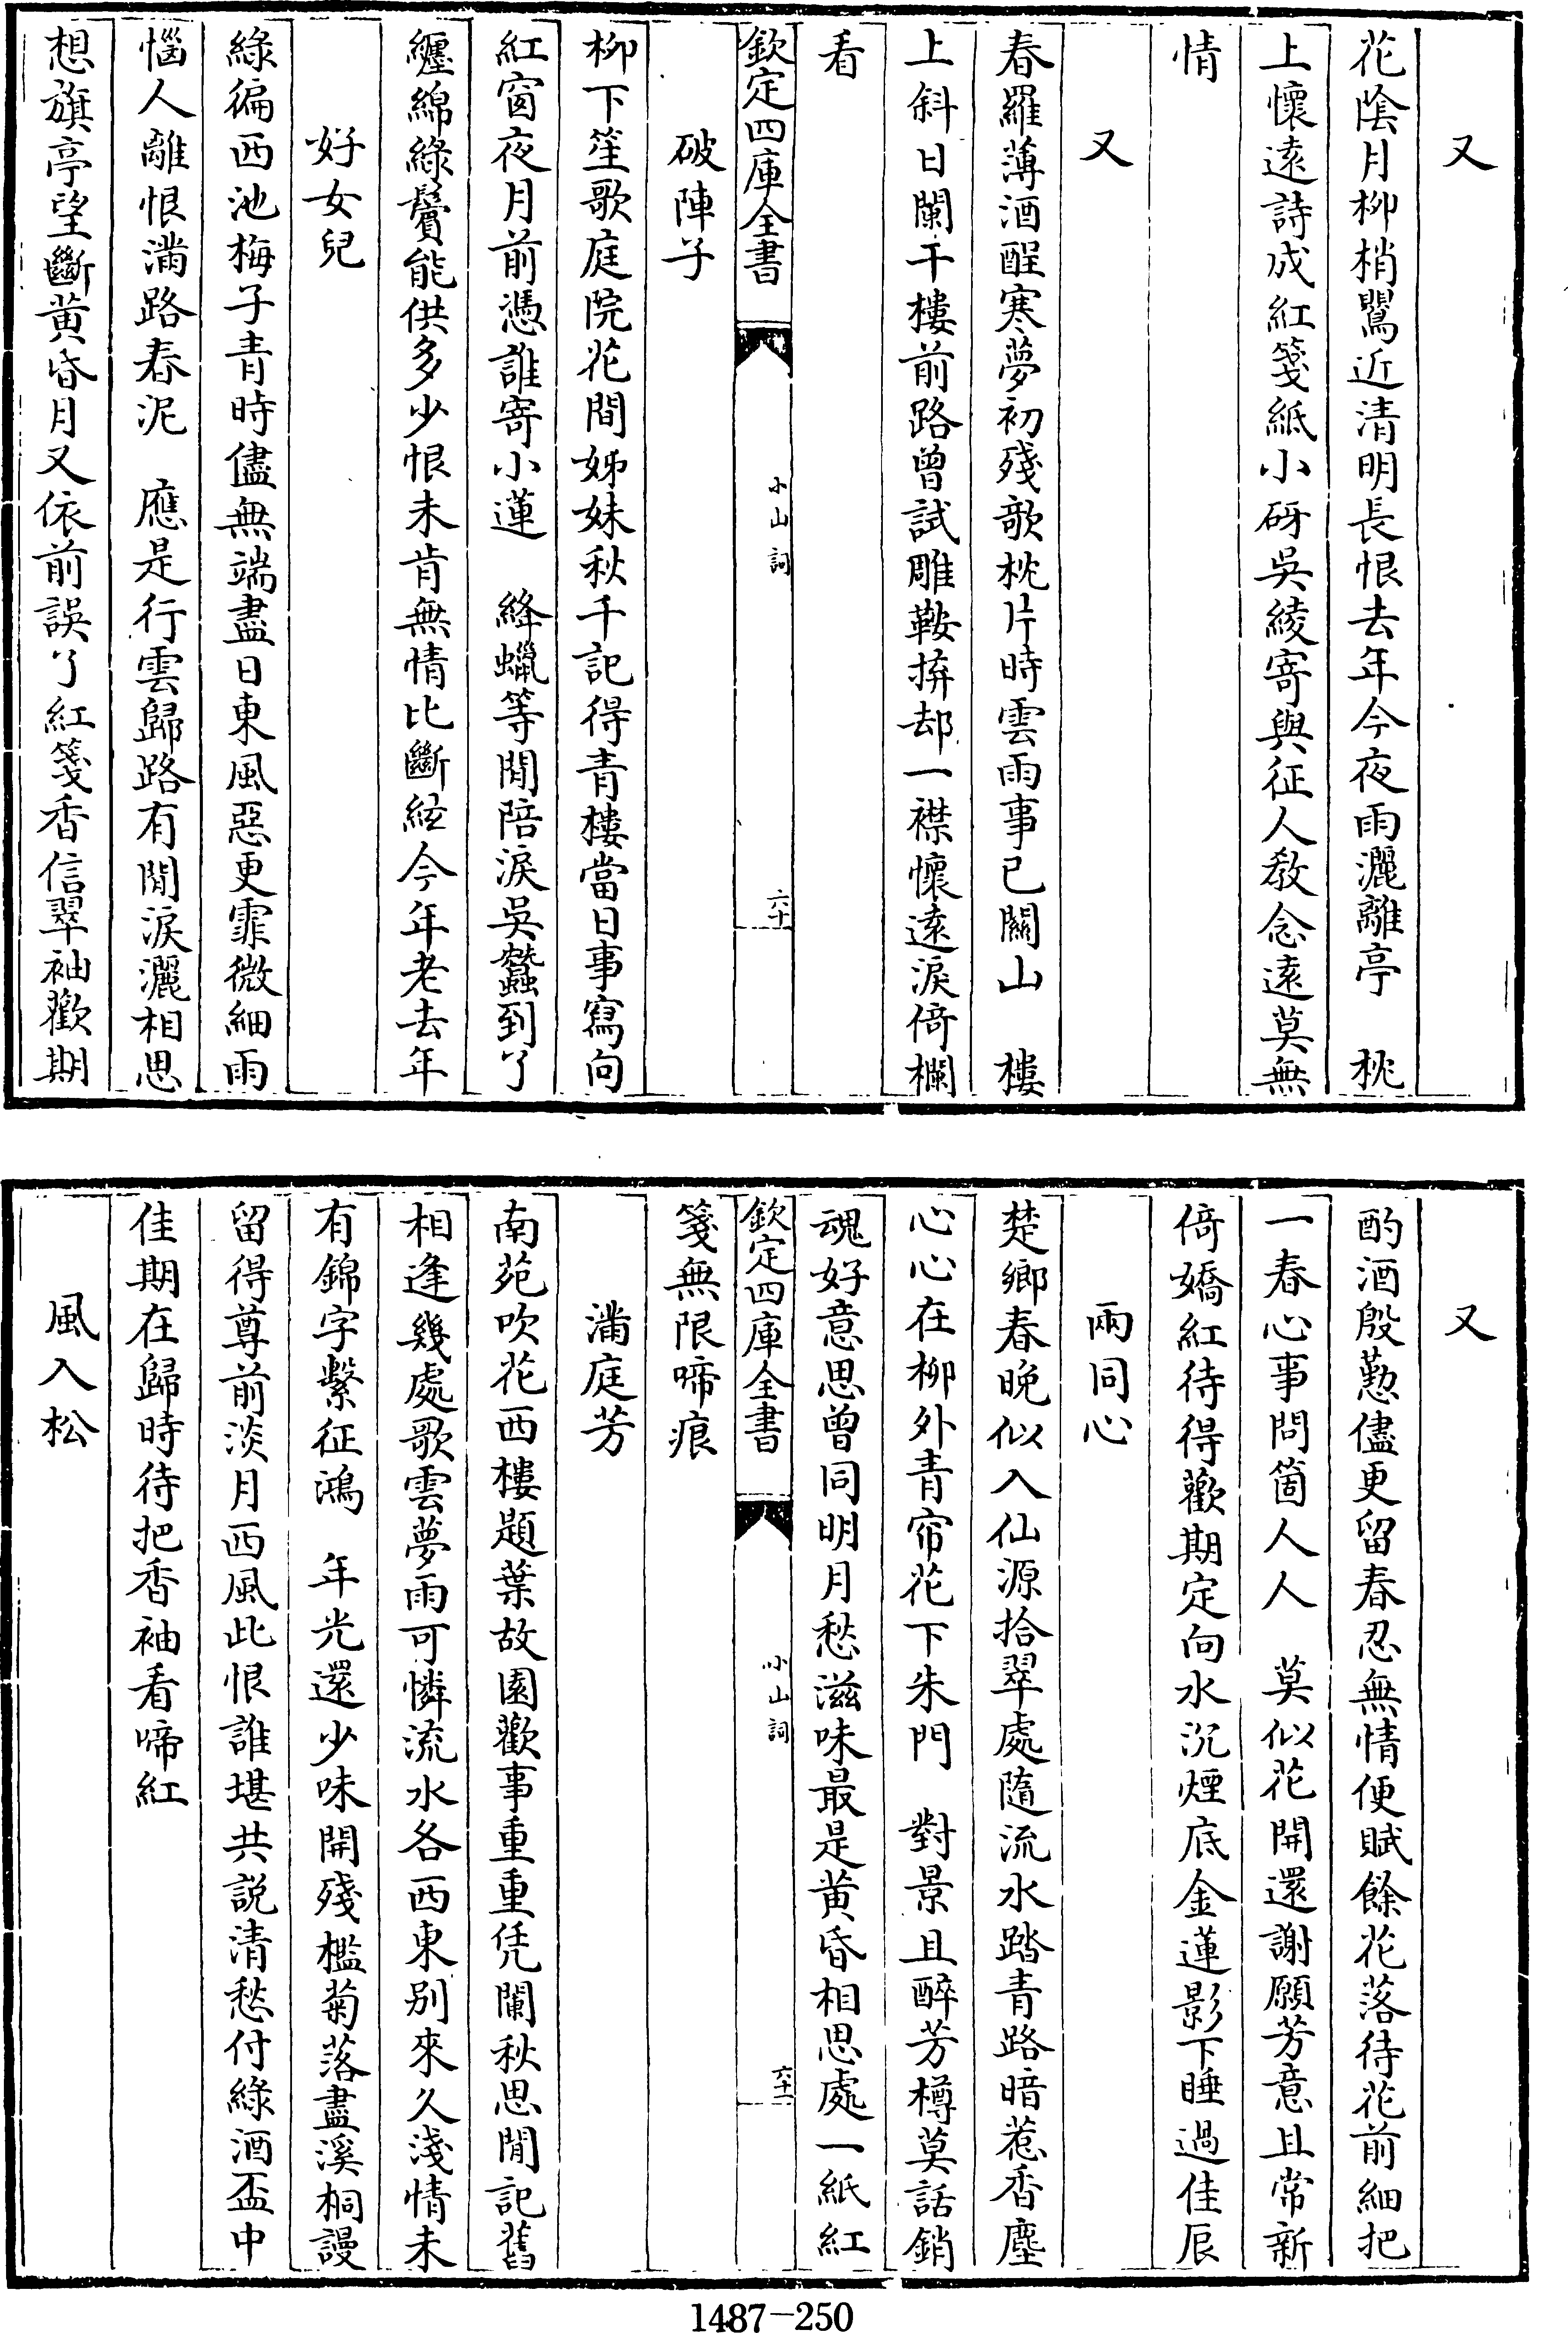 又
花陰月柳梢鶯近清明長恨去年今夜雨灑離亭　枕
上懷遠詩成紅箋紙小砑吳綾寄與征人教念遠莫無
情
又
春羅薄酒醒寒夢初殘欹枕片時雲雨事已關山　樓
上斜日闌干樓前路曾試雕鞍拚却一襟懷遠淚倚欄
看
欽定四庫全書
小山詞
六十
破陣子
柳下笙歌庭院花間姊妹秋千記得青樓當日事寫向
紅窗夜月前憑誰寄小蓮　絳蠟等閒陪淚吳蠶到了
纏綿綠鬢能供多少恨未肯無情比斷絃今年老去年
好女兒
綠徧西池梅子青時儘無端盡日東風惡更霏微細雨
惱人離恨滿路春泥　應是行雲歸路有閒淚灑相思
想旗亭望斷黃昏月又依前誤了紅箋香信翠袖歡期
又
酌酒殷懃儘更留春忍無情便賦餘花落待花前細把
一春心事問箇人人　莫似花開還謝願芳意且常新
倚嬌紅待得歡期定向水沉煙底金蓮影下睡過佳辰
兩同心
楚鄉春晚似入仙源拾翠處隨流水踏青路暗惹香塵
心心在柳外青帘花下朱門　對景且醉芳樽莫話銷
魂好意思曾同明月愁滋味最是黃昏相思處一紙紅
欽定四庫全書
小山詞
六十一
箋無限啼痕
滿庭芳
南苑吹花西樓題葉故園歡事重重凭闌秋思閒記舊
相逢幾處歌雲夢雨可憐流水各西東别來久淺情未
有錦字繫征鴻　年光還少味開殘檻菊落盡溪桐謾
留得尊前淡月西風此恨誰堪共說清愁付綠酒盃中
佳期在歸時待把香袖看啼紅
風入松
1487-250